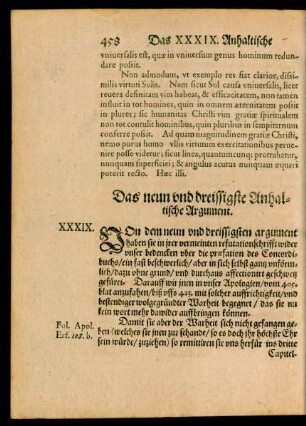 458 Das XXXIX. Anhaltische
vniuersalis est, quæ in vniuersum genus hominum redun-
dare possit.
Non admodum, vt exemplo res fiat clarior, dissi-
milis virtuti Solis. Nam sicut Sol causa vniuersalis, licet
reuera definitam vim habeat, & efficacitatem, non tamen
insluit in tot homines, quin in omnem æternitatem possit
in plures; sic humanitas Christi vim gratiæ spiritualem
non tot contulit hominibus, quin pluribus in sempiternum
conferre possit. Ad quam magnitudinem gratiæ Christi,
nemo purus homo vllis virtutum exercitationibus peruе-
nire posse videtur; sicut linea, quantumcunq; protrahatur,
nunquam superficiei; & angulus acutus nunquam æqueri
poterit recto. Hæc illi.
Das neun vnd dreissigste Anhal-
tische Argument.
XXXIX.
VOn dem neun vnd dreissigsten argument
haben sie in jrer vermeinten refutationschrifft wider
vnser bedencken vber die præfation des Concordi-
buchs / ein faß beschwerlich / aber in sich selbst gantz vnförm-
lich / dazu ohne grund / vnd durchaus affectionirt geschwetz
gefüret. Darauff wir jnen in vnser Apologien / vom 405.
blat anzufahen / biß vffs 423. mit solcher auffrichtigkeit / vnd
bestendiger wolgegründter Warheit begegnet / das sie nu
kein wort mehr dawider auffbringen können.
Fol. Apol.
Erf. 108. b.
Damit sie aber der Warheit sich nicht gefangen ge-
ben (welches sie jnen zur schande / so es doch jhr höchste Ehr
sein würde / zuziehen) so remittiren sie vns herfür ins dritte
Capitel-